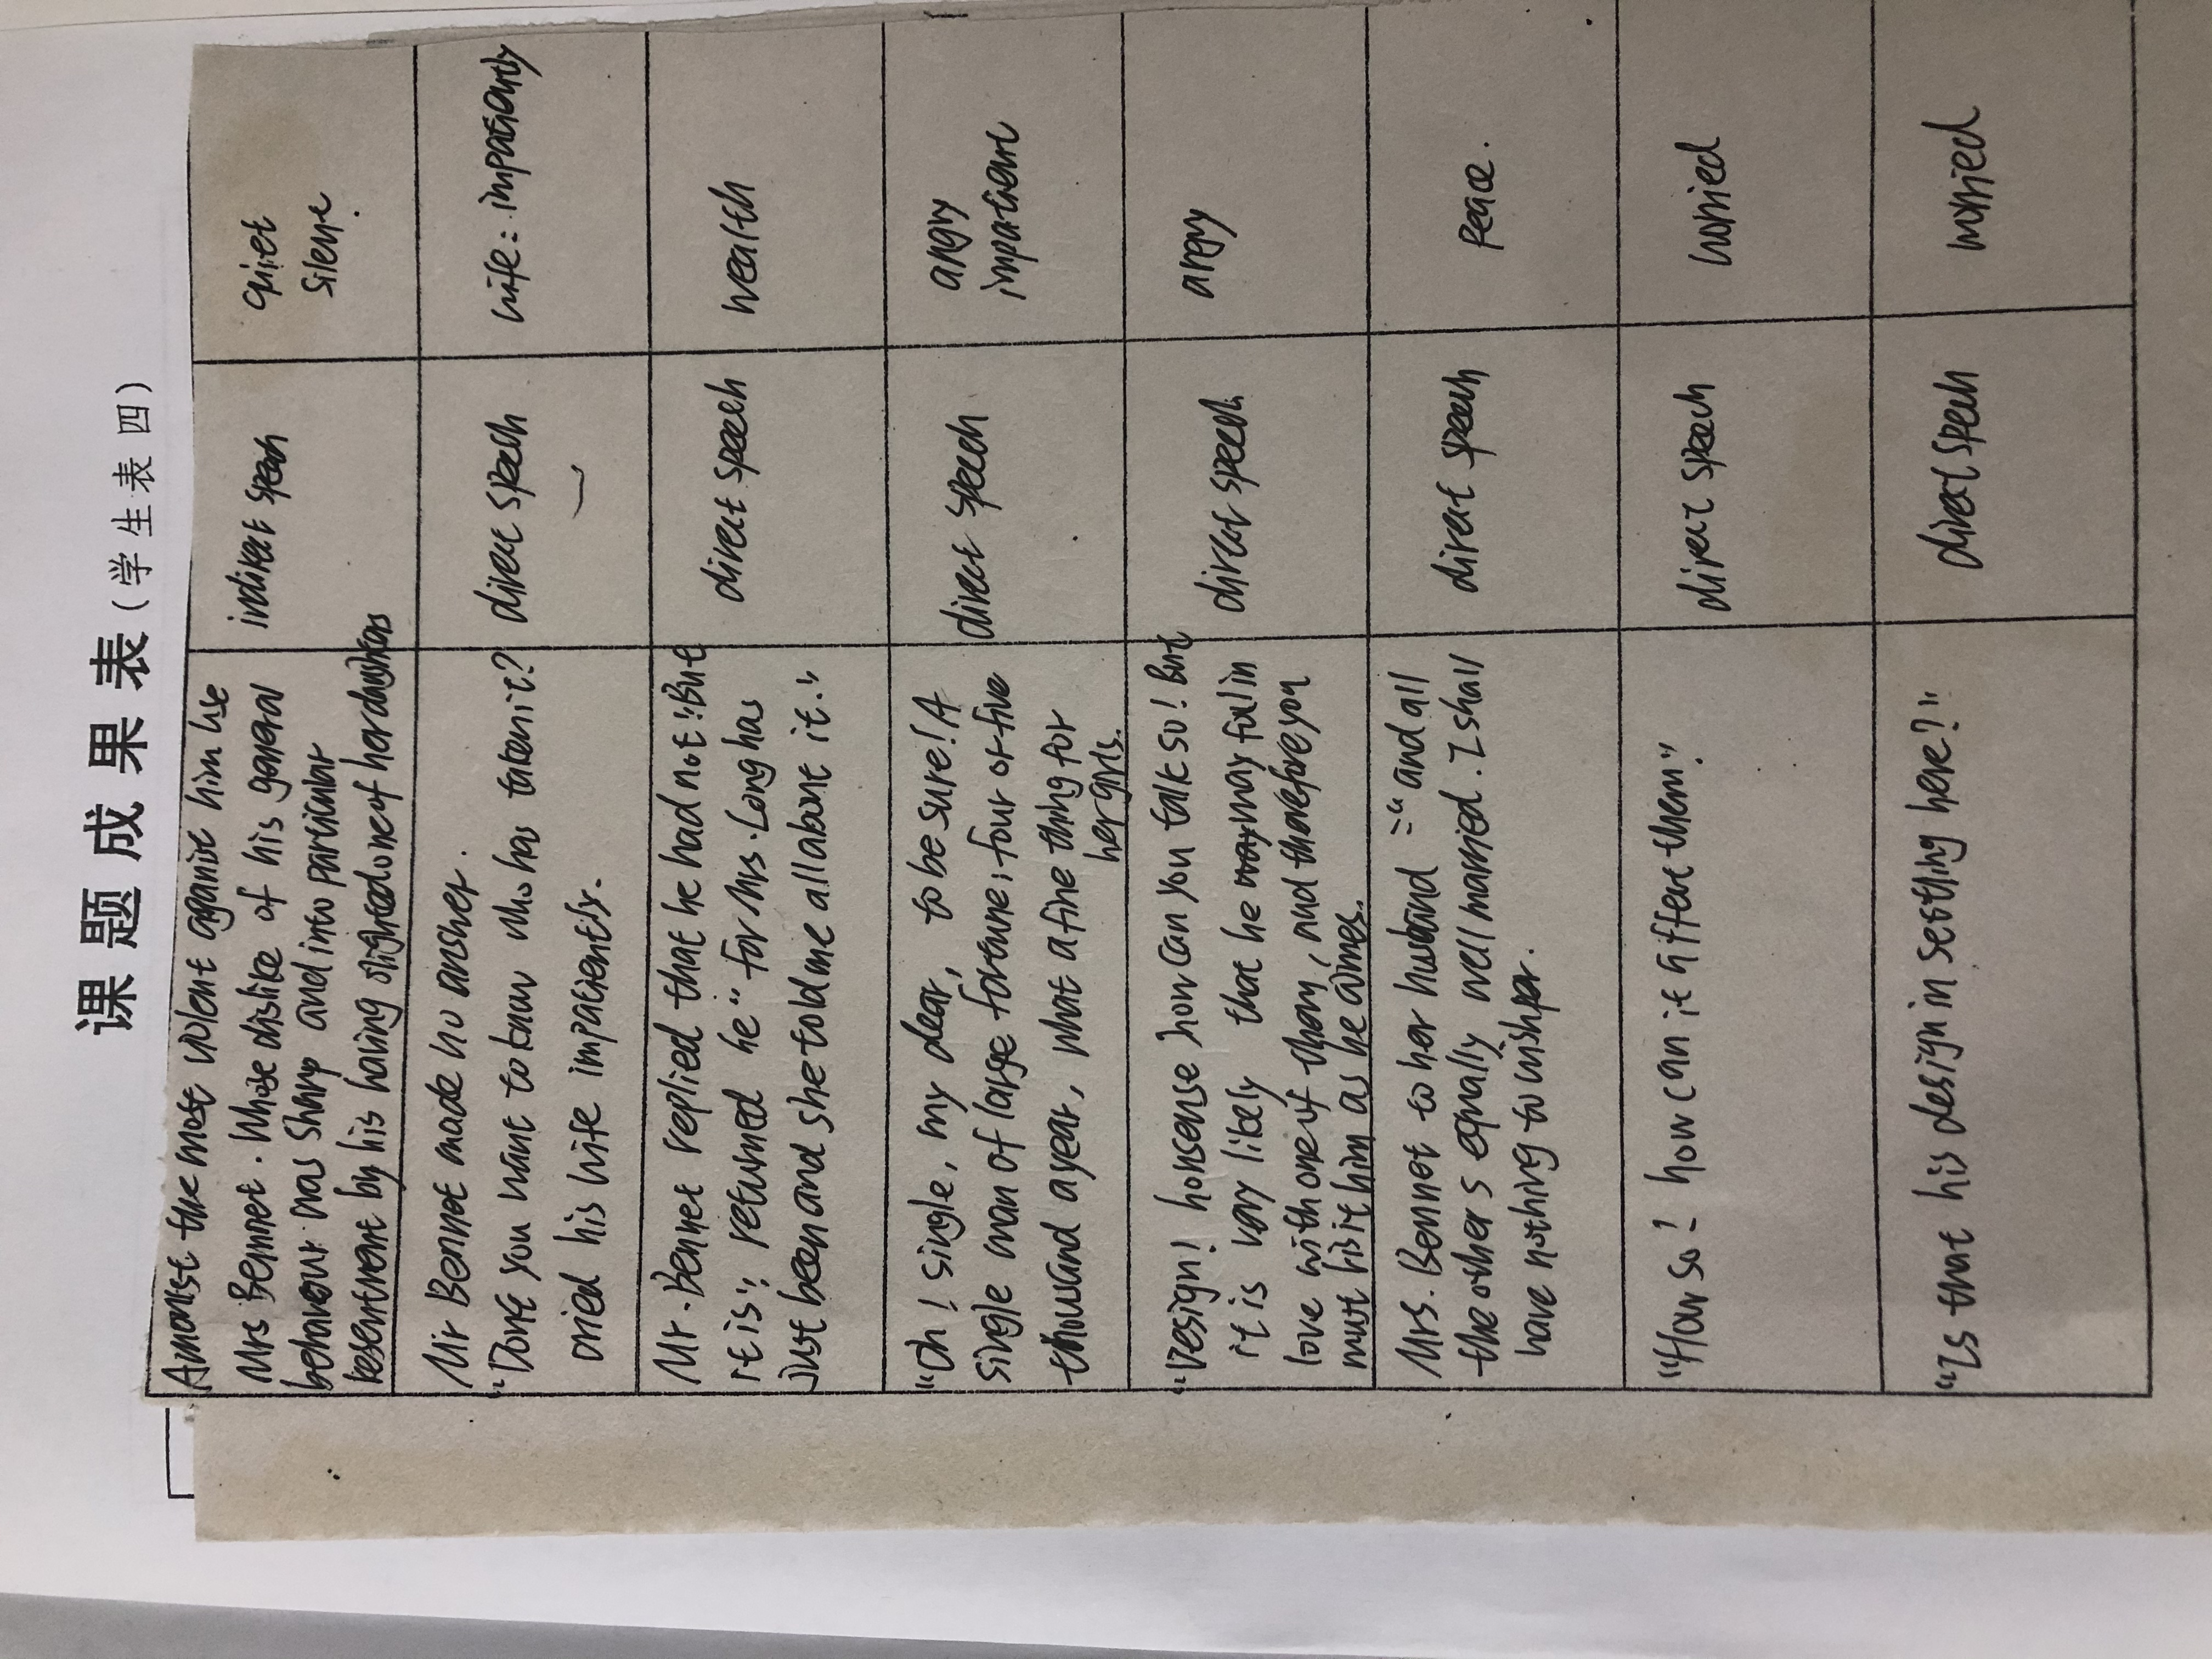 课题成果表(学生表四)
Amonst the most violent against him hse
Mrs Bennet. Whose dislike of his general
behaviour was sharp and into particular
resentment by his having slighted one of her daughters
indirect speech
quiet
silence.
Mir Bennet made no answer.
"Dont you want to know who has taken it?
cried his wife impatiently.
direct speech
wife: impatiently
Mr. Bennet replied that he had not "But
it is", returned he "for Mrs. Long has
just been and she told me all about it."
direct speech
wealth
"Oh! single, my dear, to be sure! A
single man of large fortune; four or five
thouusand a year, what a fine thing for
her girls.
direct speech
angry
impatient
"Design! nonsense how can you talk so! But
it is very likely that he may fall in
love with one of them, and therefore you
must visit him as he comes.
direct speech
angry
Mrs. Bennet to her husband :"and all
the others equally well married. I shall
have nothing to wish for.
direct speech
peace.
"How so? how can it affect them"
direct speech
worried
"Is that his design in setthing here?"
direct speech
worried